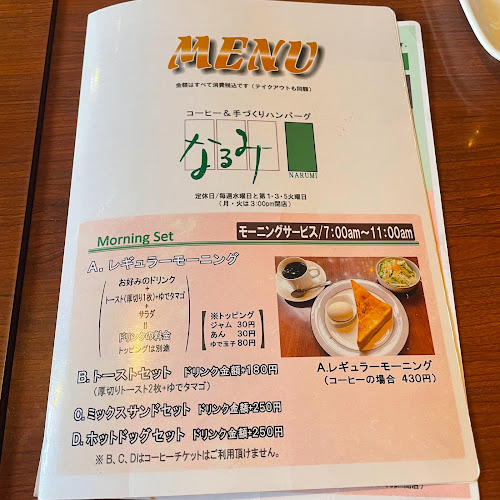 MENU
金額はすべて消費税込です（テイクアウトも同額）
コーヒー＆手づくりハンバーグ
なるみ
NARUMI
定休日/毎週水曜日と第1・3・5火曜日
（月・火は3:00pm閉店）
Morning Set
モーニングサービス/7:00am～11:00am
A。レギュラーモーニング
お好みのドリンク
+
トースト(厚切り1枚)+ゆでタマゴ
+
サラダ
=
ドリンクの料金
トッピングは別途
※トッピング
ジャム 30円
あん 30円
ゆで玉子80円
A.レギュラーモーニング
（コーヒーの場合 430円）
B.トーストセット ドリンク金額+180円
（厚切りトースト2枚+ゆでタマゴ）
C.ミックスサンドセット ドリンク金額+250円
D.ホットドッグセット ドリンク金額+250円
※ B、C、Dはコーヒーチケットはご利用頂けません。